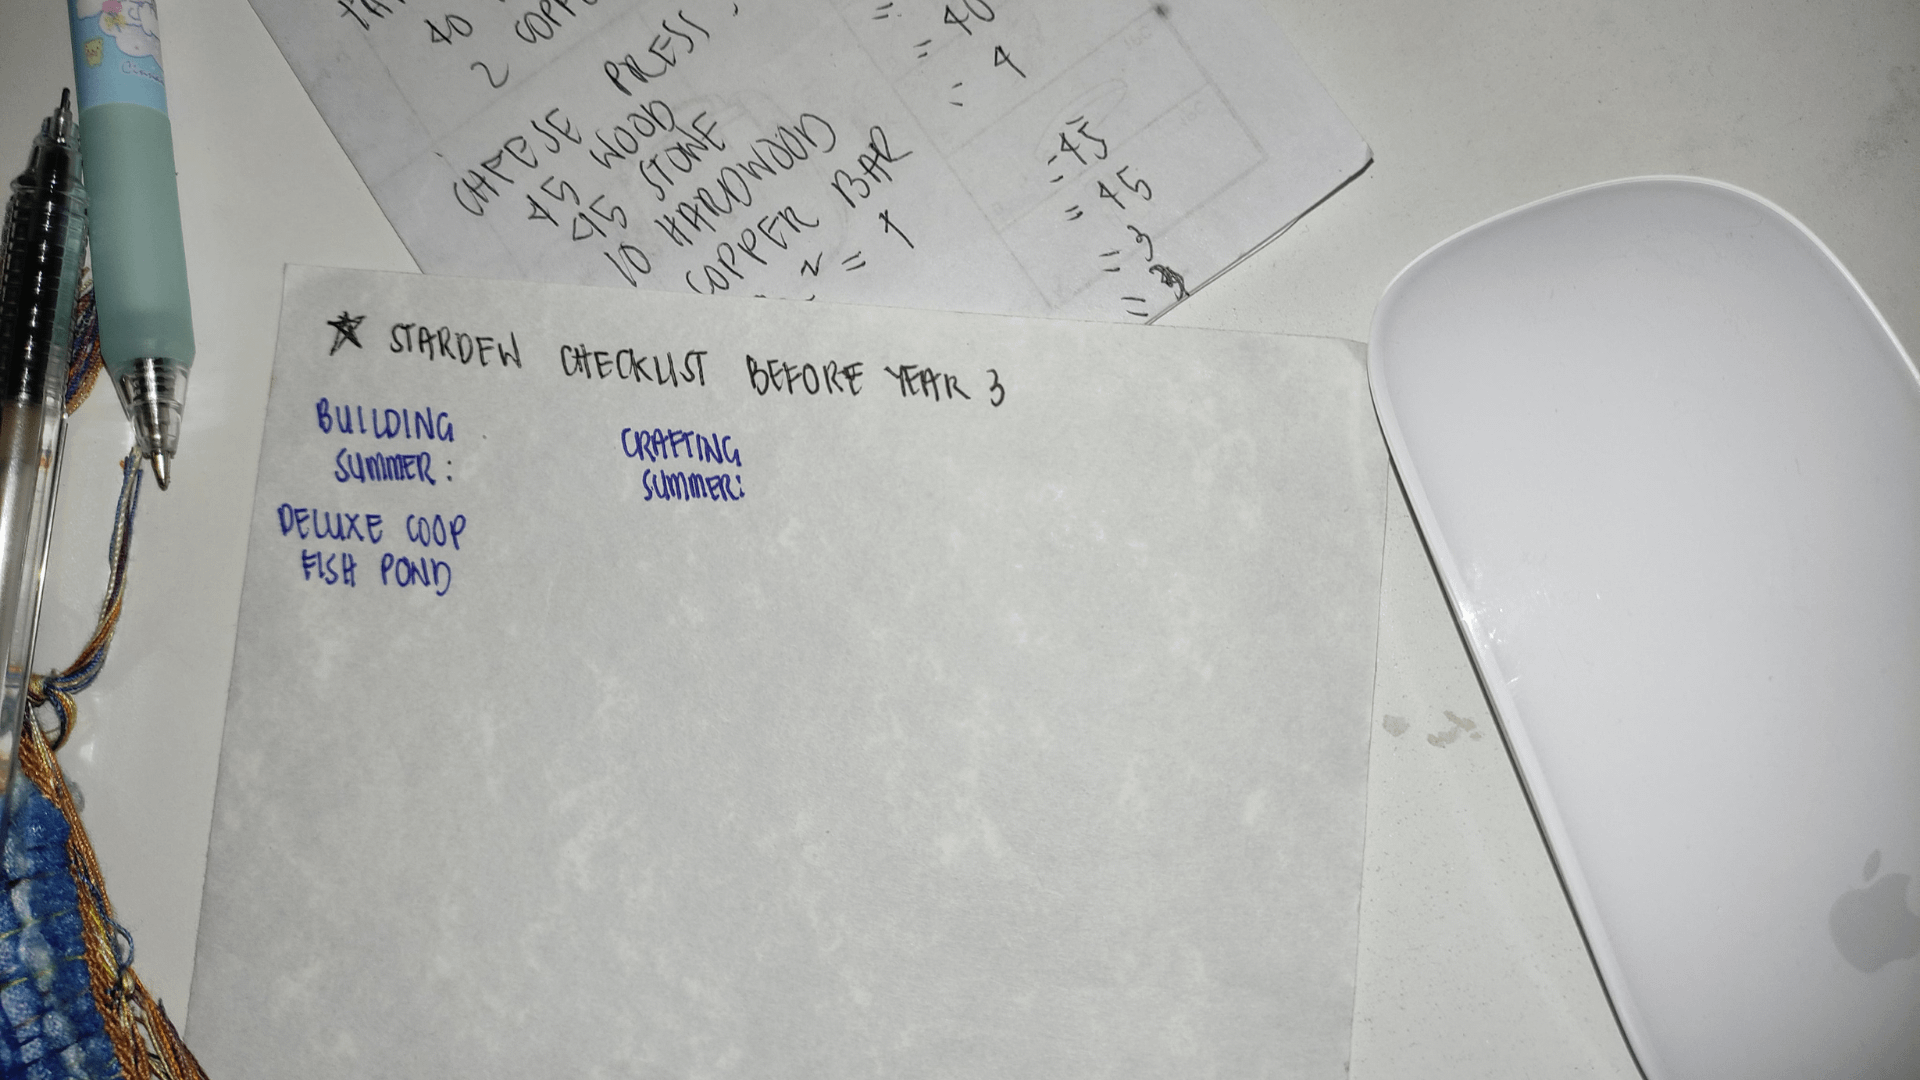 40
2 COPP
CHEESE PRESS
45 WOOD
45 STONE
10 HARDWOOD
COPPER BAR
= 1
=
= 40
= 4
= 45
= 45
= 3
=
★ STARDEW CHECKLIST BEFORE YEAR 3
BUILDING
SUMMER:
DELUXE COOP
FISH POND
CRAFTING
SUMMER: